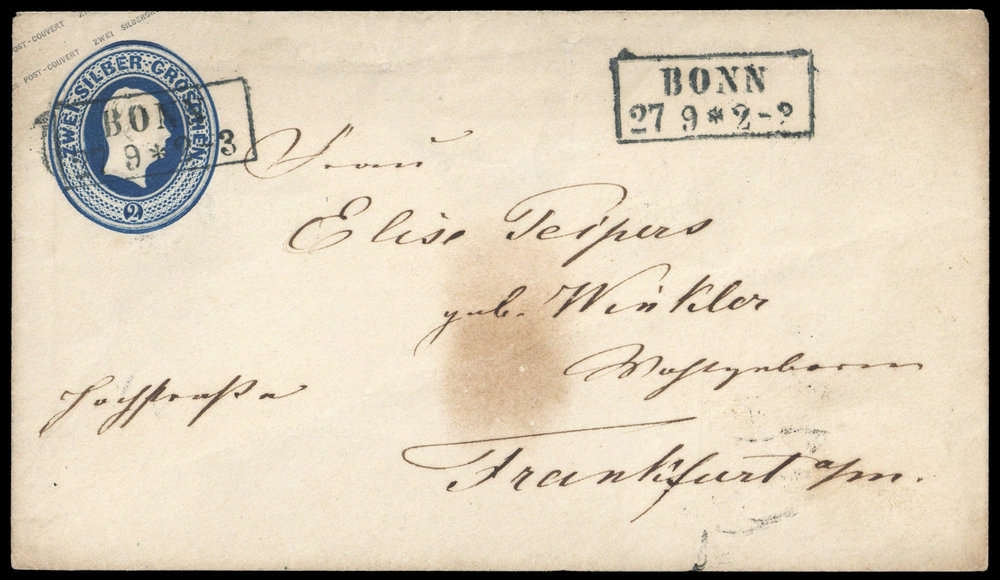 POST-COUVERT ZWEI SILBERGR
POST-COUVERT ZWEI
ZWEI SILBER-GROSCHEN
2
BONN
9 * 3
BONN
27 9 * 2-3
Frau
Elise Peipers
geb. Winkler
Wohlgeboren
Hochstraße
Frankfurt a/m.